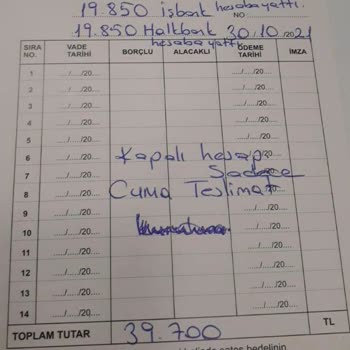 19.850 işbank hesaba yattı.
NO
19.850 Halkbank 30/10/2021
hesaba yattı
SIRA NO. VADE TARİHİ BORÇLU ALACAKLI ÖDEME TARİHİ İMZA
1 ..../..../20.... ..../..../20....
2 ..../..../20.... ..../..../20....
3 ..../..../20.... ..../..../20....
4 ..../..../20.... ..../..../20....
5 ..../..../20.... ..../..../20....
6 ..../..../20.... Kapalı hesap ..../..../20....
7 ..../..../20.... Sadece
8 ..../..../20.... Cuma Teslimat
9 ..../..../20.... ..../..../20....
10 ..../..../20.... ..../..../20....
11 ..../..../20.... ..../..../20....
12 ..../..../20.... ..../..../20....
13 ..../..../20.... ..../..../20....
14 ..../..../20.... ..../..../20....
TOPLAM TUTAR 39.700 TL
bedelinin